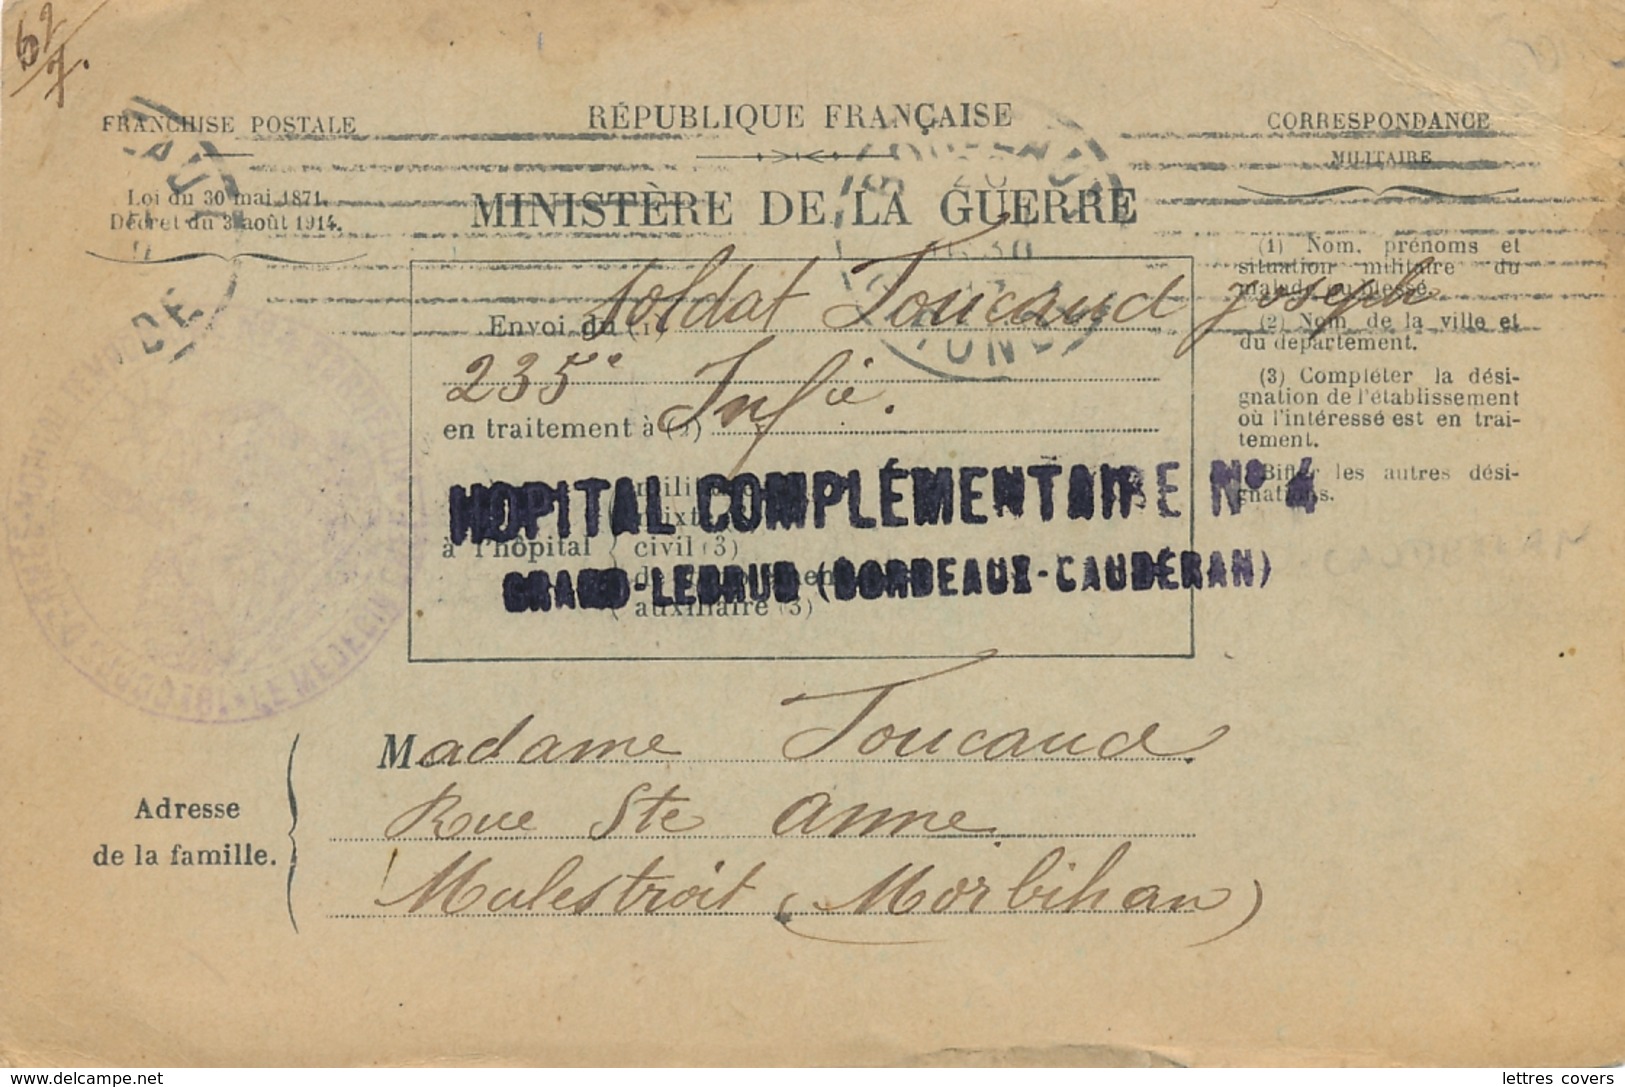 FRANCHISE POSTALE
Loi du 30 mai 1871.
Décret du 3 août 1914.
RÉPUBLIQUE FRANÇAISE
MINISTÈRE DE LA GUERRE
CORRESPONDANCE
MILITAIRE
(1) Nom, prénoms et
situation militaire du
malade ou blessé.
(2) Nom de la ville et
du département.
(3) Compléter la dési-
gnation de l'établissement
où l'intéressé est en trai-
tement.
Biffer les autres dési-
gnations.
Envoi du (1) soldat Toucaud Joseph
235e Infie.
en traitement à (2)
HOPITAL COMPLÉMENTAIRE No 4
GRAND-LEBRUN (BORDEAUX-CAUDÉRAN)
à l'hôpital
civil (3)
auxiliaire (3)
Adresse
de la famille.
Madame Toucaud
Rue Ste Anne
Malestroit (Morbihan)
lettres covers